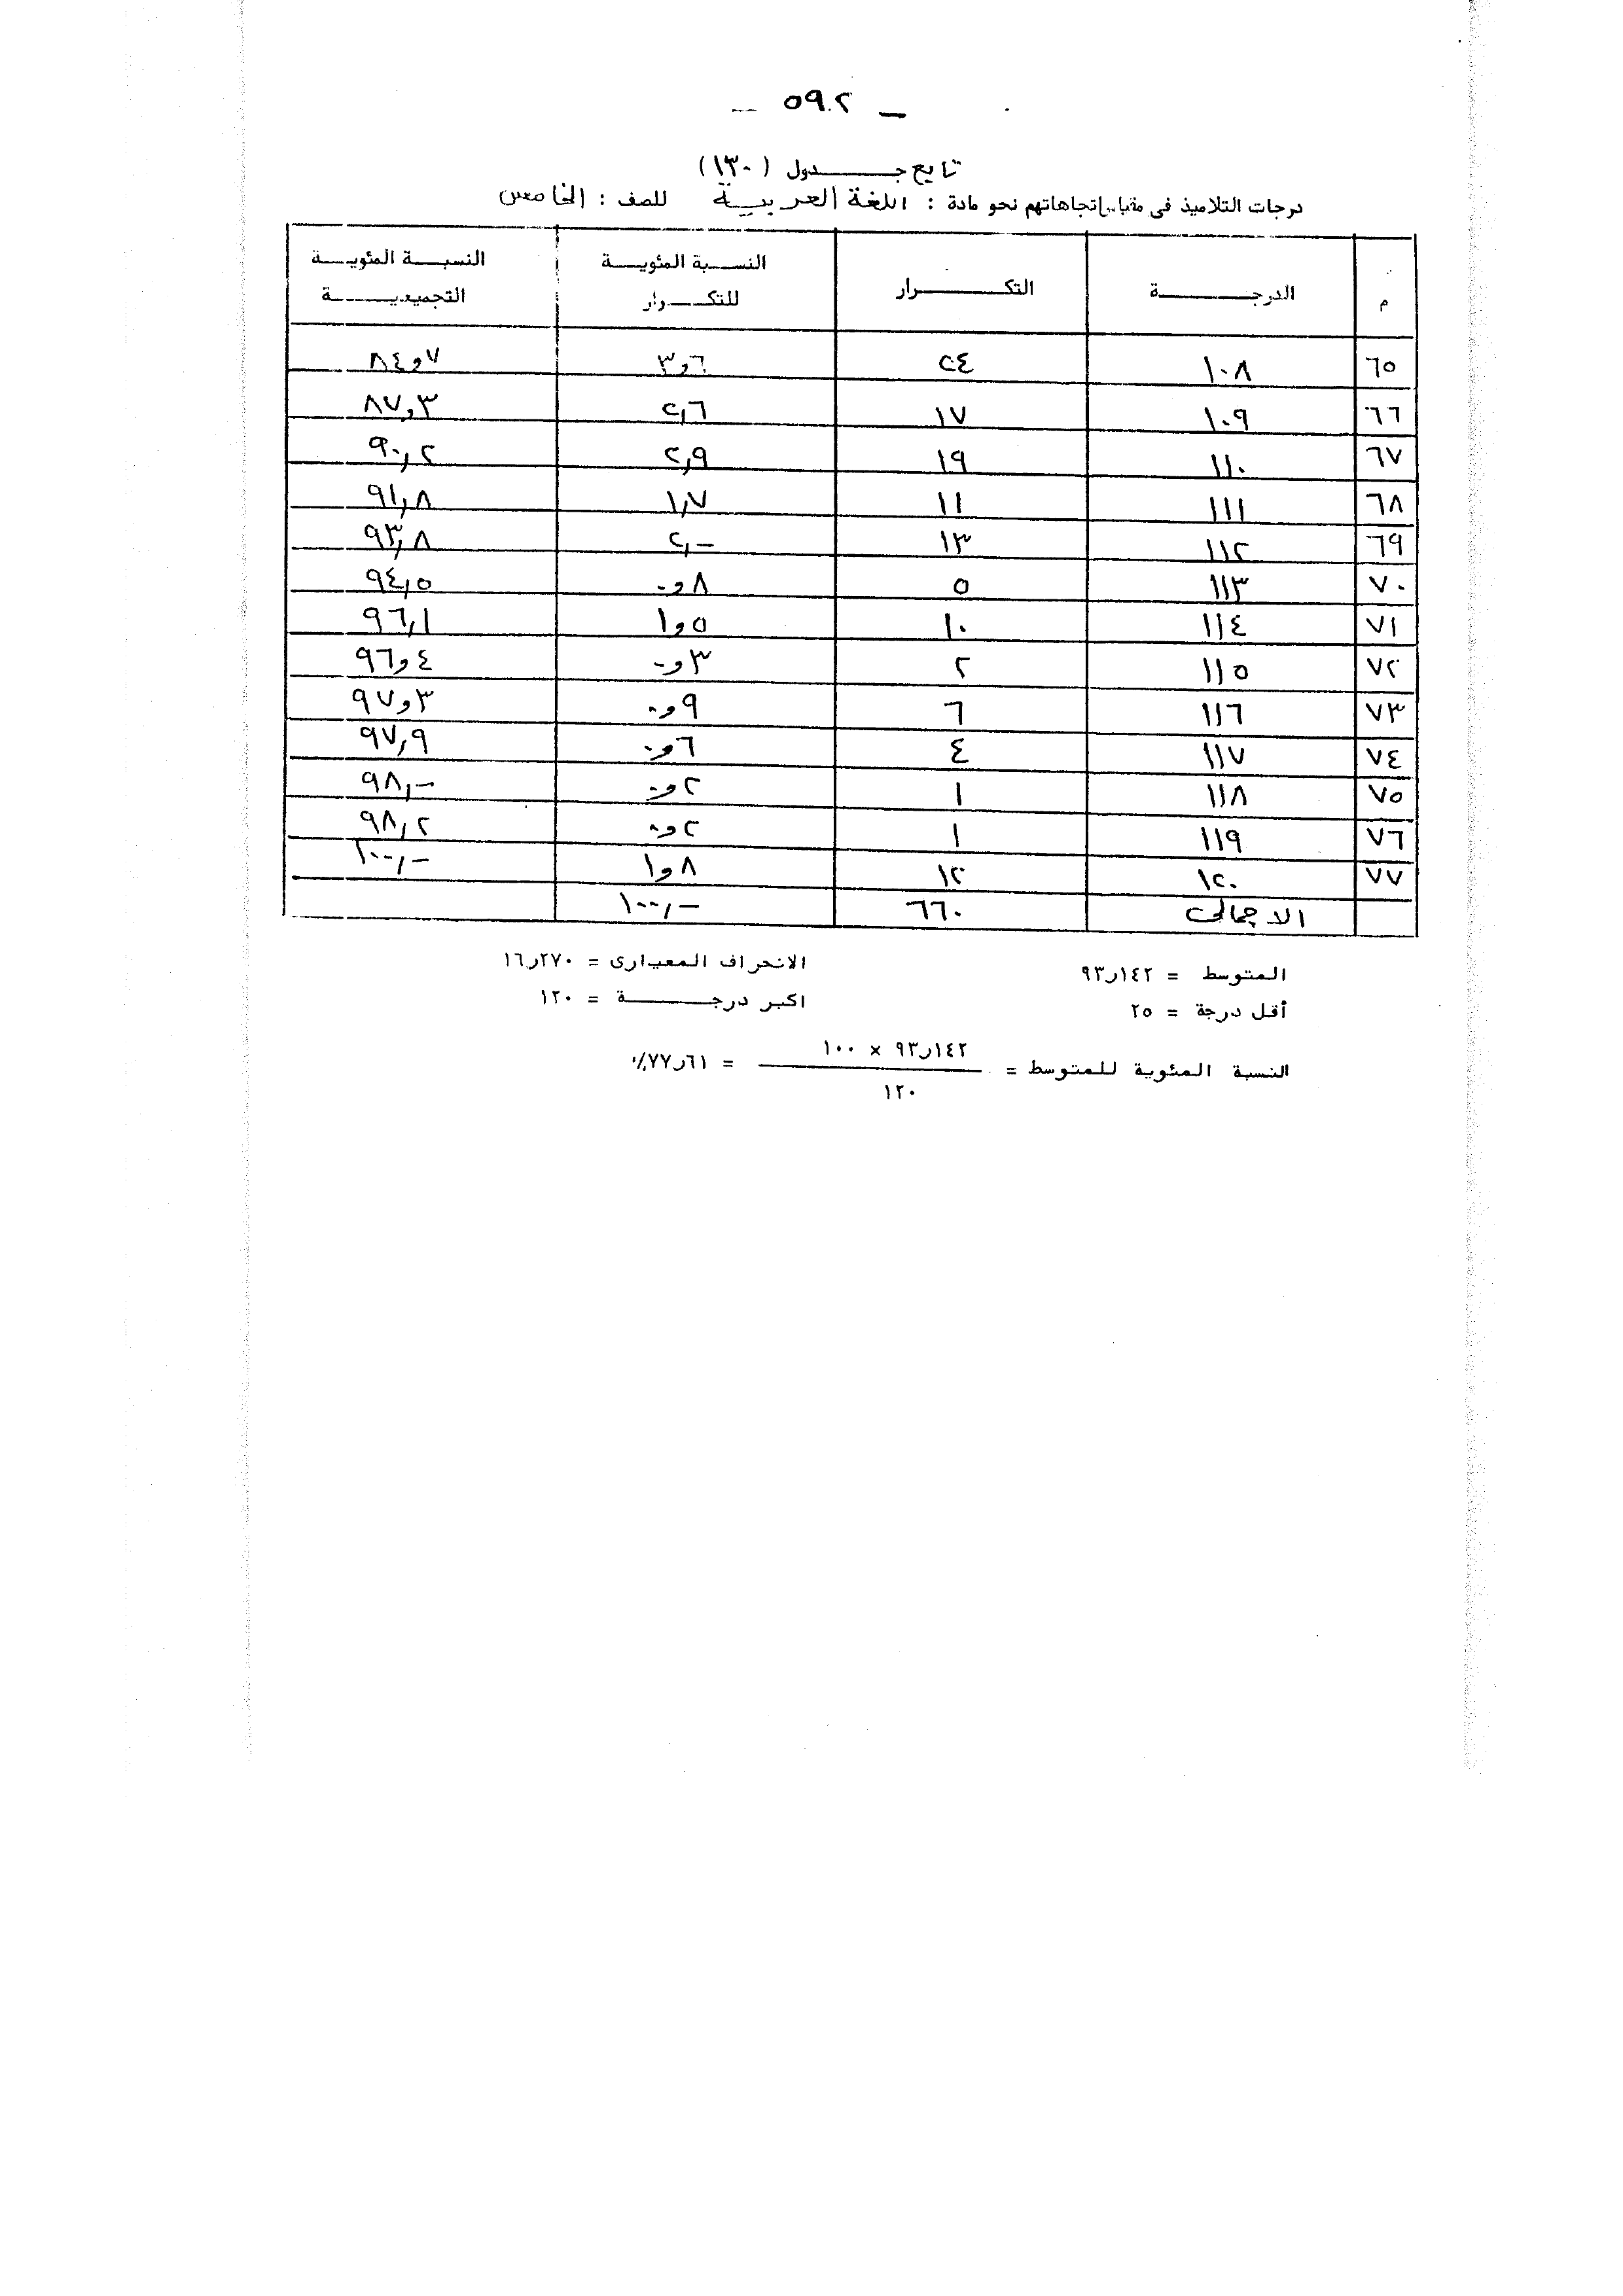 — ٥٩٢ —
تابع جدول (١٣٠)
درجات التلاميذ فى مقياس إتجاهاتهم نحو مادة : اللغة العربية للصف : الخامس
م الدرجة التكرار النسبة المئوية للتكرار النسبة المئوية التجميعية
٦٥ ١٠٨ ٢٤ ٣و٦ ٨٤و٧
٦٦ ١٠٩ ١٧ ٢,٦ ٨٧,٣
٦٧ ١١٠ ١٩ ٢,٩ ٩٠,٢
٦٨ ١١١ ١١ ١,٧ ٩١,٨
٦٩ ١١٢ ١٣ ٢,- ٩٣,٨
٧٠ ١١٣ ٥ ٠و٨ ٩٤,٥
٧١ ١١٤ ١٠ ١و٥ ٩٦,١
٧٢ ١١٥ ٢ ٠و٣ ٩٦و٤
٧٣ ١١٦ ٦ ٠و٩ ٩٧و٣
٧٤ ١١٧ ٤ ٠و٦ ٩٧,٩
٧٥ ١١٨ ١ ٠و٢ ٩٨,-
٧٦ ١١٩ ١ ٠و٢ ٩٨,٢
٧٧ ١٢٠ ١٢ ١و٨ ١٠٠,-
الاجمالى ٦٦٠ ١٠٠,-
المتوسط = ٩٣ر١٤٢ الانحراف المعيارى = ١٦ر٢٧٠
أقل درجة = ٢٥ اكبر درجة = ١٢٠
النسبة المئوية للمتوسط = ٩٣ر١٤٢ × ١٠٠ / ١٢٠ = ٧٧ر٦١٪